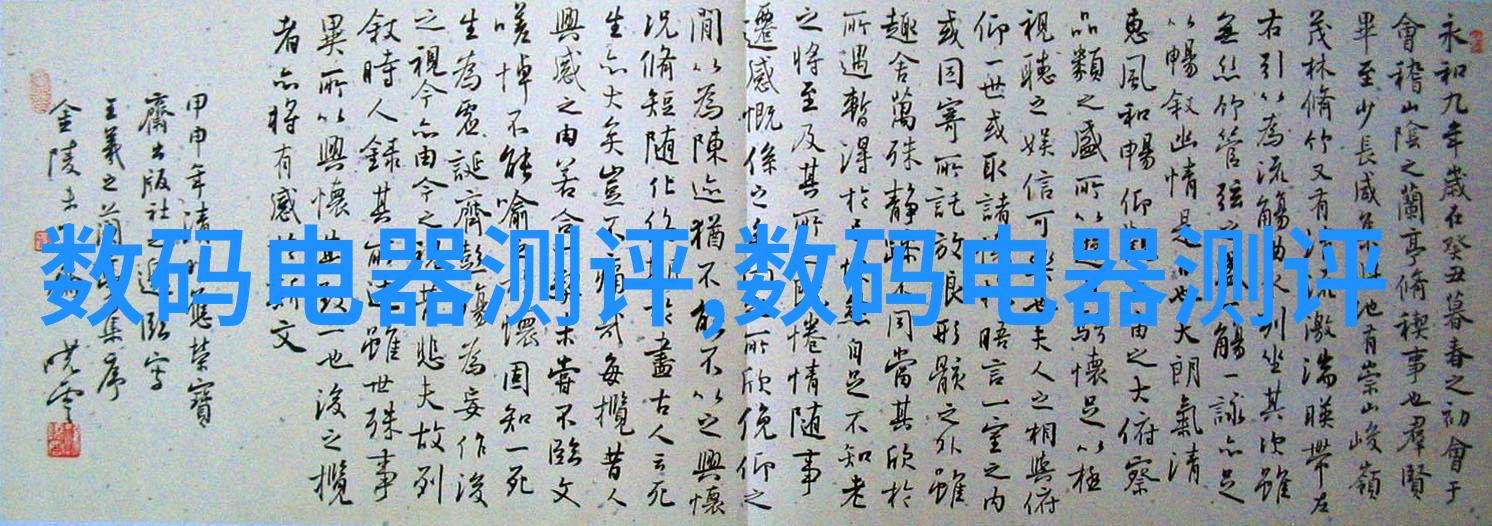 永和九年歲在癸丑暮春之初會于
會稽山陰之蘭亭脩稧事也羣賢
畢至少長咸集此地有崇山峻嶺
茂林脩竹又有清流激湍暎帶左
右引以為流觴曲水列坐其次雖
無絲竹管弦之盛一觴一詠亦足
以暢敘幽情是日也天朗氣清
惠風和暢仰觀宙之大俯察
品類之盛所以遊騁懷足以極
視聽之娛信可樂也夫人之相與俯
仰一世或取諸懷抱晤言一室之內
或因寄所託放浪形骸之外雖
趣舍萬殊靜躁不同當其欣於
所遇暫得於己快然自足不知老
之將至及其所之既惓情隨事
遷感慨係之矣向之所欣俛仰之
間以為陳迹猶不能不以之興懷
況脩短隨化終期於盡古人云死
生亦大矣豈不痛哉每攬昔人
興感之由若合一契未嘗不臨文
嗟悼不能喻之懷固知一死
生為虛誕齊彭殤為妄作後
之視今亦由今之視昔悲夫故列
敘時人錄其所述雖世殊事
異所以興懷其致一也後之攬
者亦將有感於斯文
甲申年清明應榮寶
齋出版社之邀臨寫
王羲之蘭亭集序
金陵
数码电器测评,数码电器测评